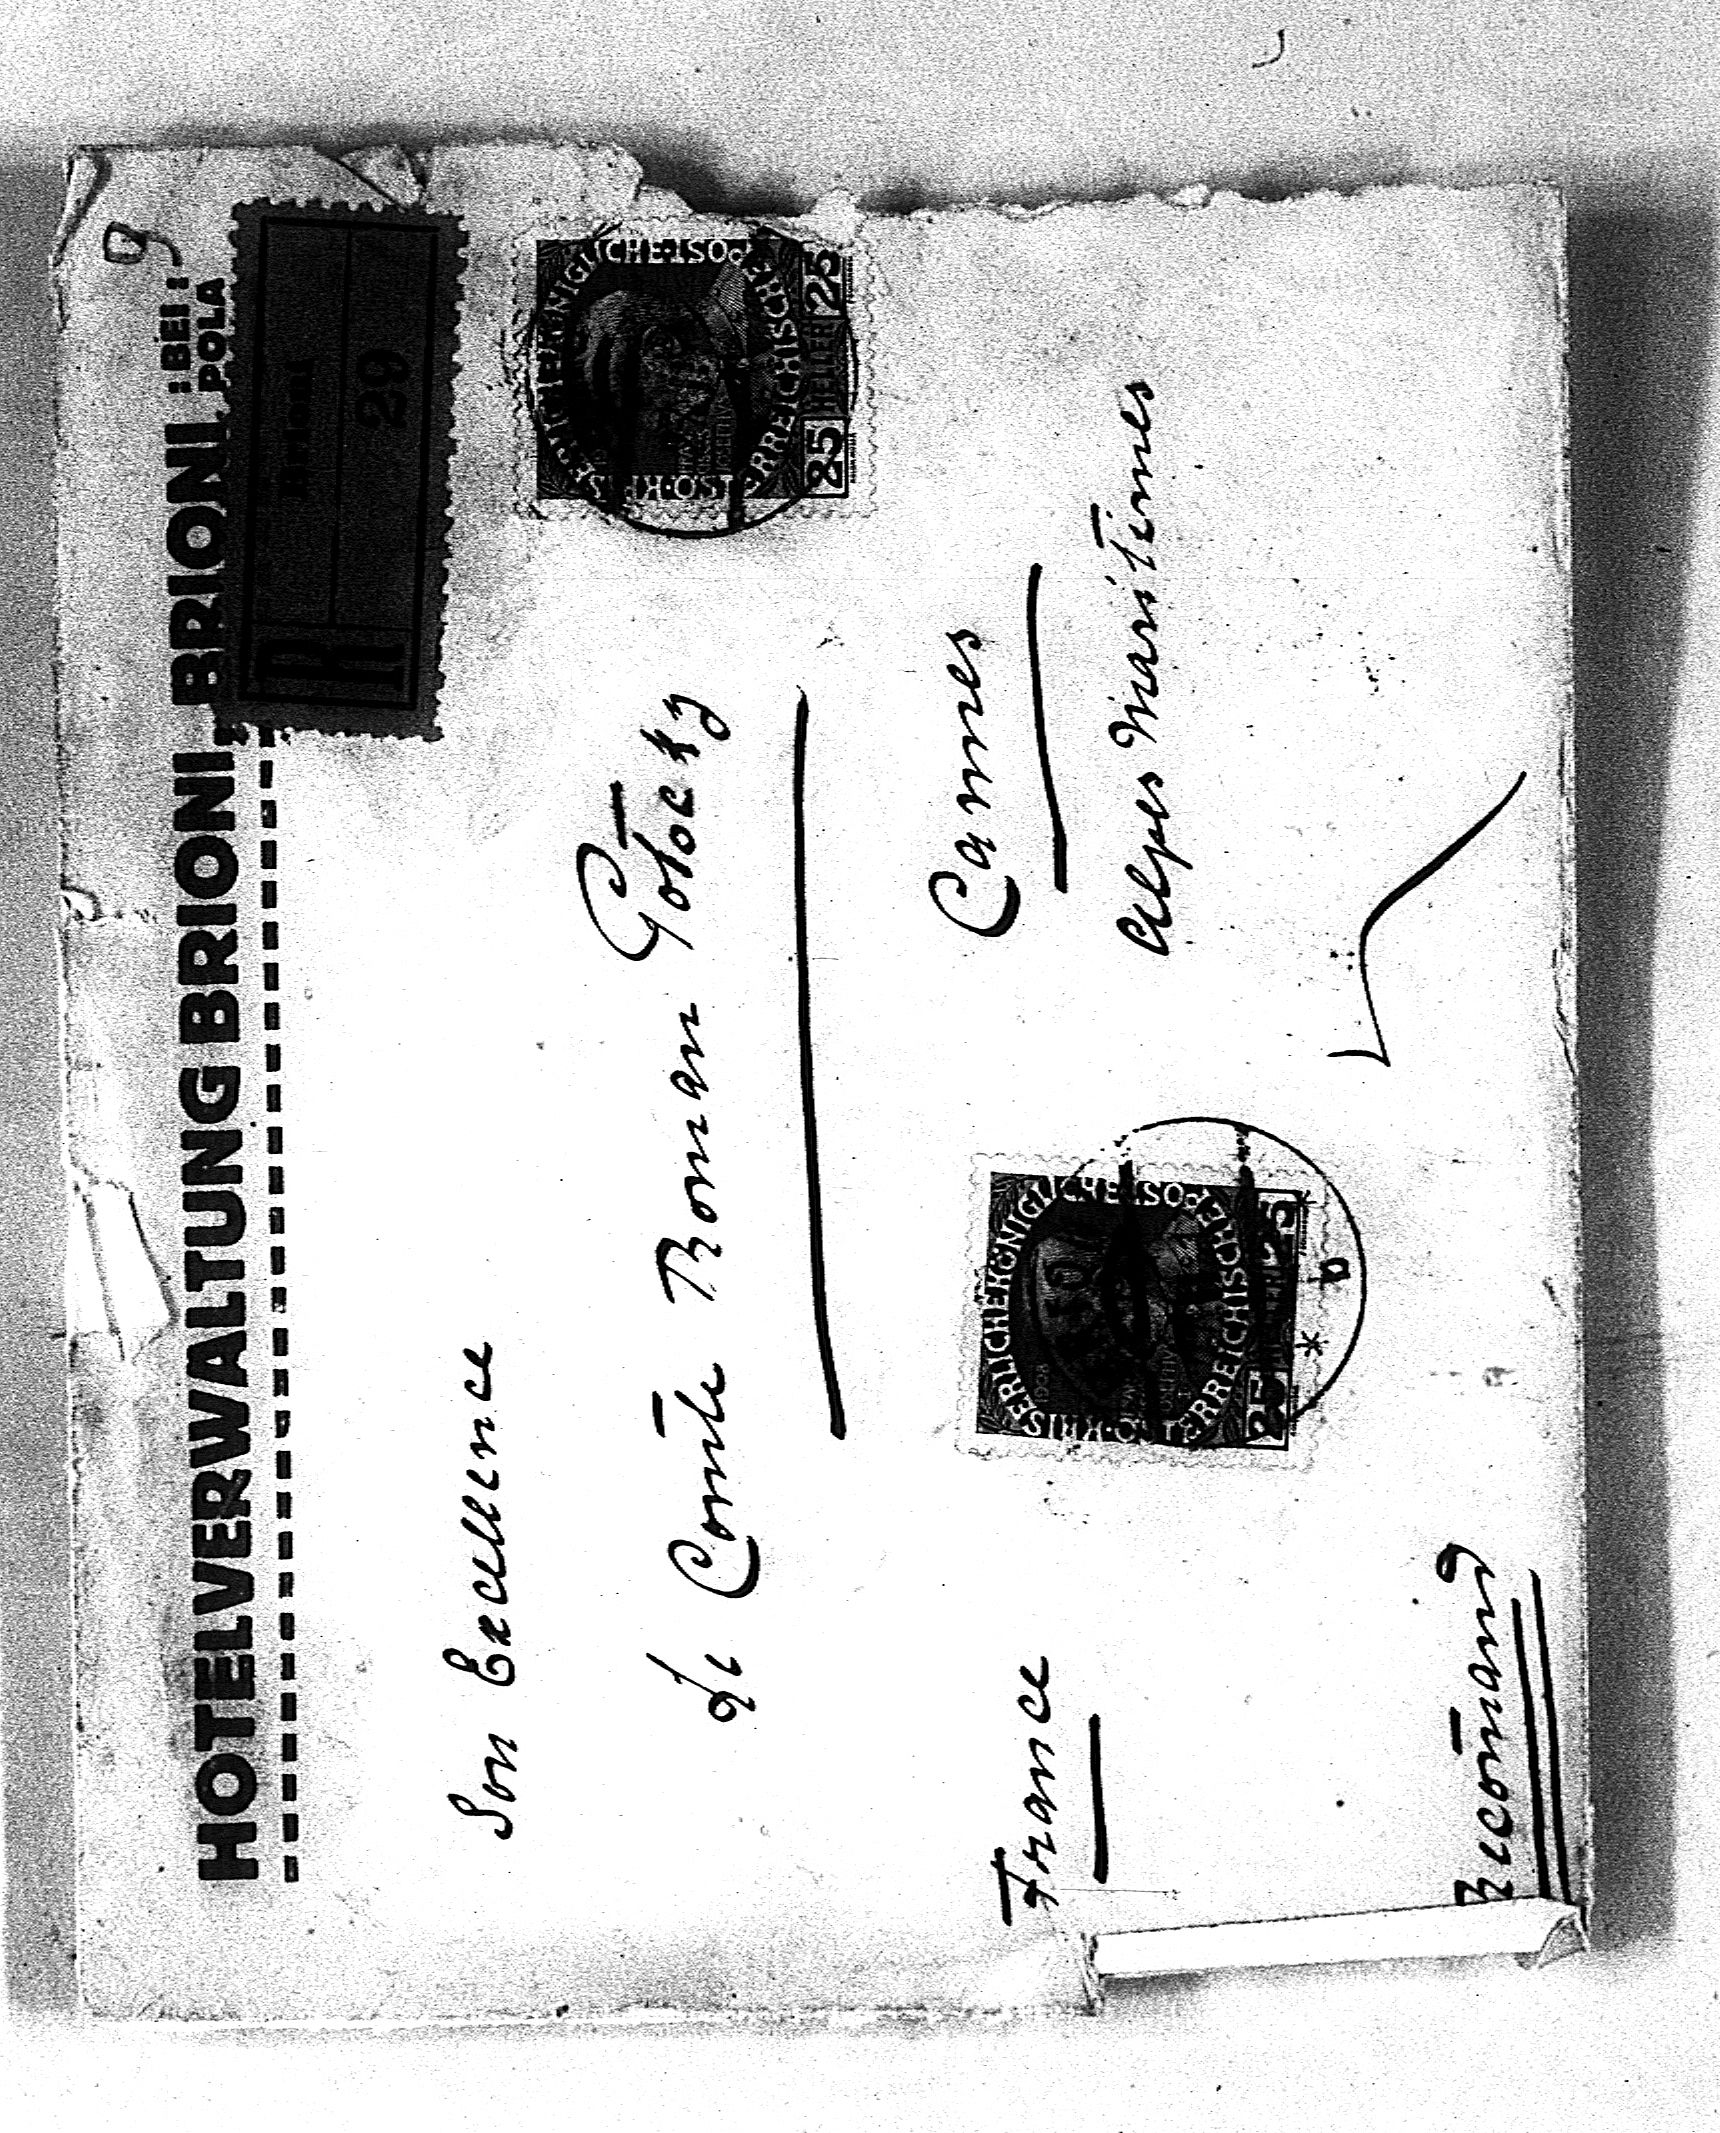 HOTELVERWALTUNG BRIONI, BRIONI, BRIONI, : BEI :
POLA
R Brioni
29
KAISERLICHE KÖNIGLICHE POST
ÖSTERREICHISCHE
25 HELLER 25
Son Excellence
Le Comte Roman Potocky
Cannes
Alpes Maritimes
France
KAISERLICHE KÖNIGLICHE POST
ÖSTERREICHISCHE
1908
25 HELLER 25
* b *
Recomand